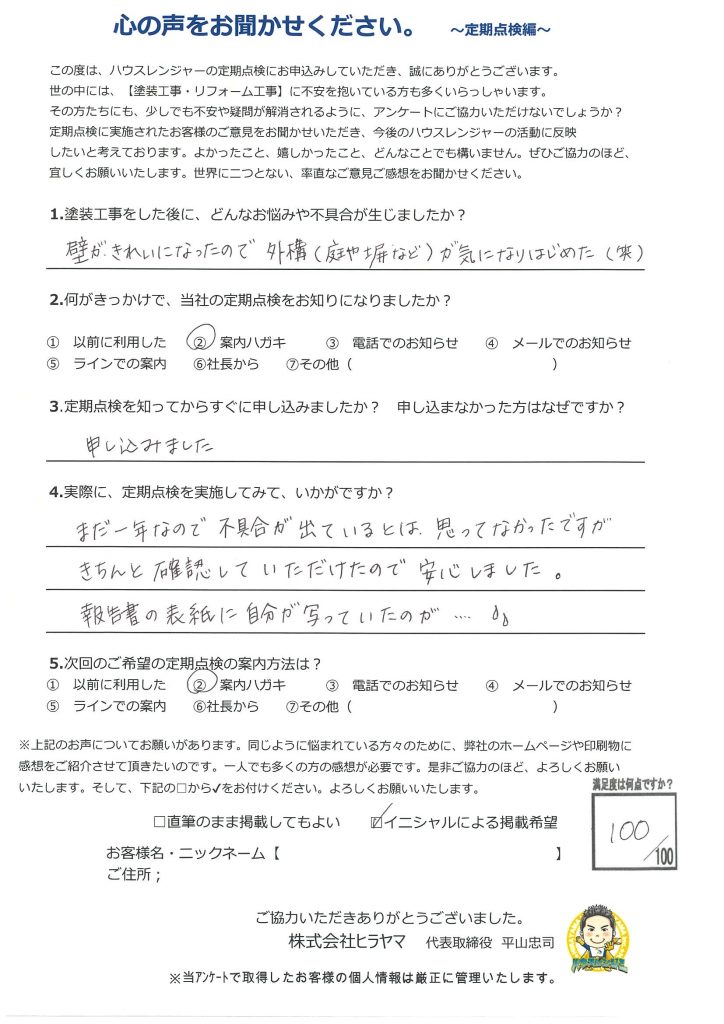 心の声をお聞かせください。 ～定期点検編～
この度は、ハウスレンジャーの定期点検にお申込みしていただき、誠にありがとうございます。
世の中には、【塗装工事・リフォーム工事】に不安を抱いている方も多くいらっしゃいます。
その方たちにも、少しでも不安や疑問が解消されるように、アンケートにご協力いただけないでしょうか？
定期点検に実施されたお客様のご意見をお聞かせいただき、今後のハウスレンジャーの活動に反映
したいと考えております。よかったこと、嬉しかったこと、どんなことでも構いません。ぜひご協力のほど、
宜しくお願いいたします。世界に二つとない、率直なご意見ご感想をお聞かせください。
1.塗装工事をした後に、どんなお悩みや不具合が生じましたか？
壁がきれいになったので 外構（庭や塀など）が気になりはじめた（笑）
2.何がきっかけで、当社の定期点検をお知りになりましたか？
① 以前に利用した ② 案内ハガキ ③ 電話でのお知らせ ④ メールでのお知らせ
⑤ ラインでの案内 ⑥社長から ⑦その他（ ）
3.定期点検を知ってからすぐに申し込みましたか？ 申し込まなかった方はなぜですか？
申し込みました
4.実際に、定期点検を実施してみて、いかがですか？
まだ一年なので 不具合が出ているとは 思ってなかったですが
きちんと確認して いただけたので 安心しました。
報告書の表紙に自分が写っていたのが …
5.次回のご希望の定期点検の案内方法は？
① 以前に利用した ② 案内ハガキ ③ 電話でのお知らせ ④ メールでのお知らせ
⑤ ラインでの案内 ⑥社長から ⑦その他（ ）
※上記のお声についてお願いがあります。同じように悩まれている方々のために、弊社のホームページや印刷物に
感想をご紹介させて頂きたいのです。一人でも多くの方の感想が必要です。是非ご協力のほど、よろしくお願い
いたします。そして、下記の□から✓をお付けください。よろしくお願いいたします。
満足度は何点ですか？
100/100
□直筆のまま掲載してもよい ☑イニシャルによる掲載希望
お客様名・ニックネーム【 】
ご住所；
ご協力いただきありがとうございました。
株式会社ヒラヤマ 代表取締役 平山忠司
※当アンケートで取得したお客様の個人情報は厳正に管理いたします。